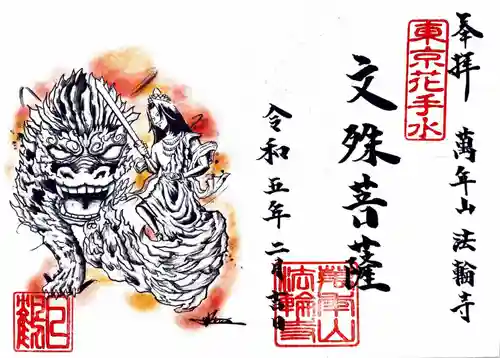 奉拝
萬年山 法輪寺
東京花手水
文殊菩薩
令和五年二月吉日
萬年山
法輪寺